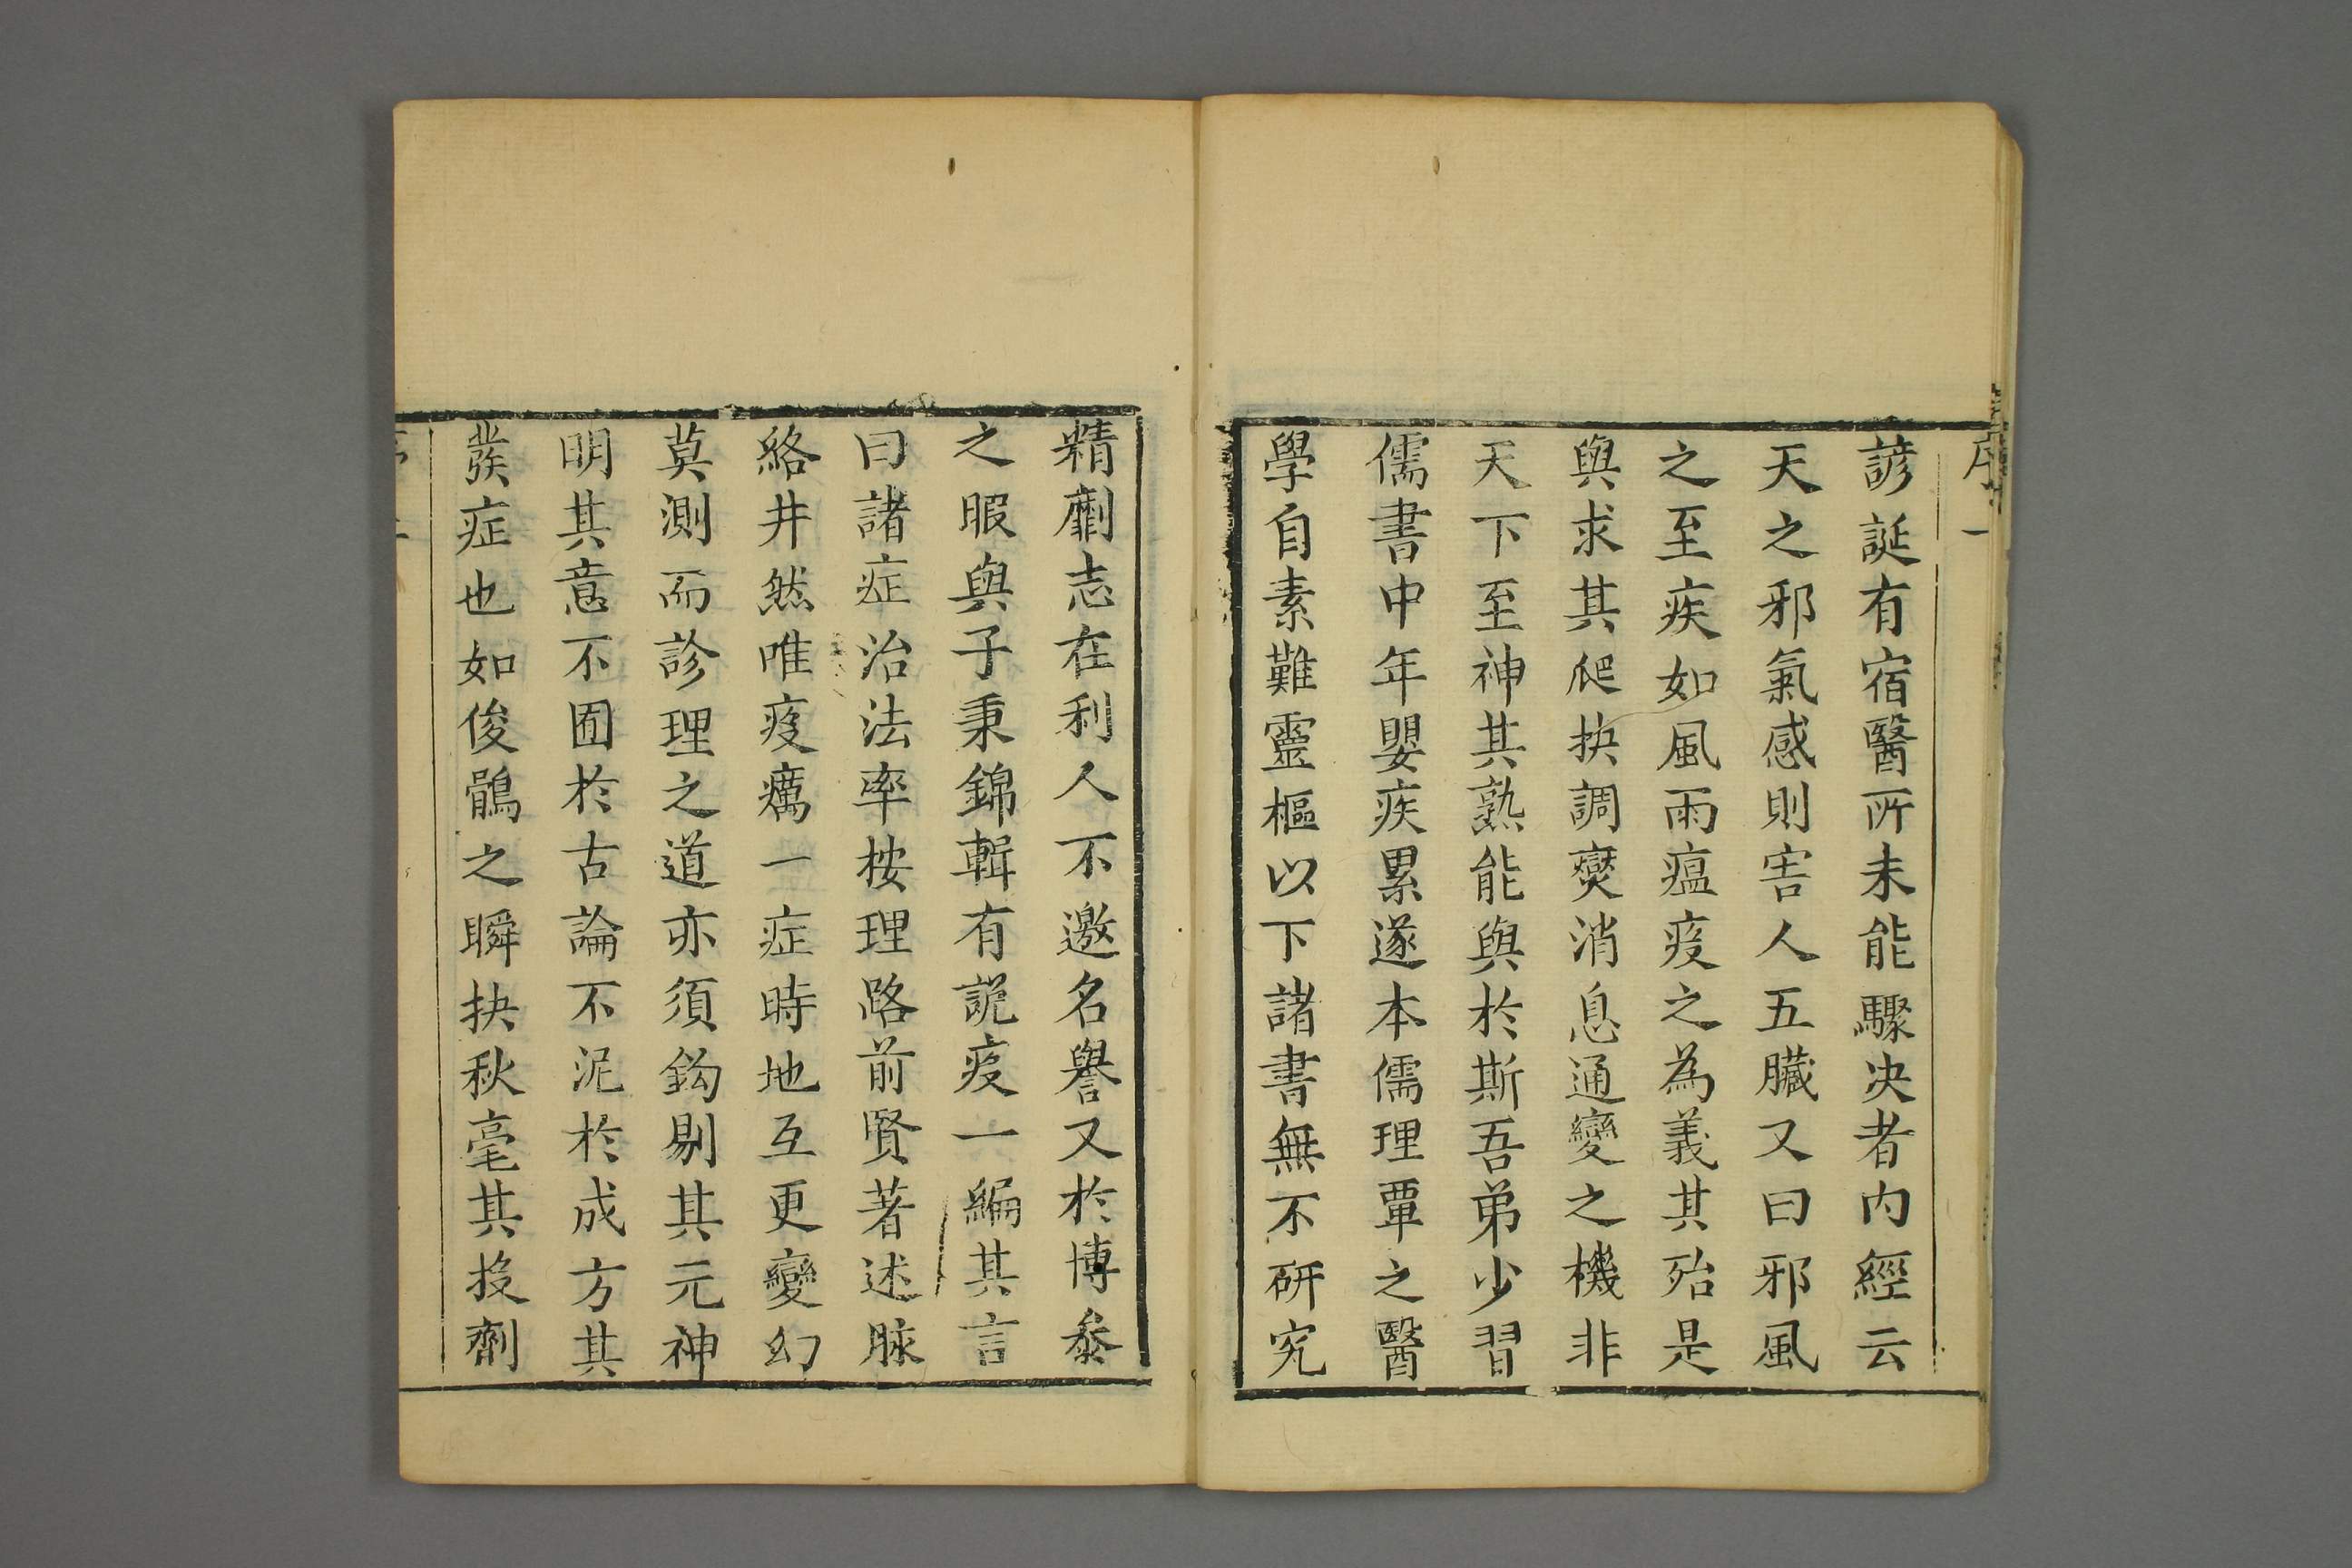 序 一
諺誕有宿醫所未能驟决者内經云
天之邪氣感則害人五臟又曰邪風
之至疾如風雨瘟疫之為義其殆是
與求其爬抉調燮消息通變之機非
天下至神其孰能與於斯吾弟少習
儒書中年嬰疾累遂本儒理覃之醫
學自素難靈樞以下諸書無不研究
精劘志在利人不邀名譽又於博叅
之暇與子秉錦輯有說疫一編其言
曰諸症治法率按理路前賢著述脉
絡井然唯疫癘一症時地互更變幻
莫測而診理之道亦須鈎剔其元神
明其意不囿於古論不泥於成方其
發症也如俊鶻之瞬抉秋毫其投劑